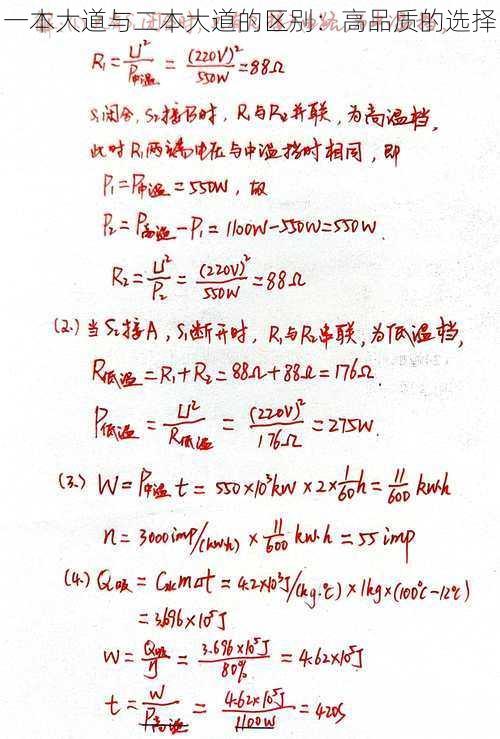 一本大道与二本大道的区别：高品质的选择
R₁ = U²/P中温 = (220V)²/550W = 88Ω
S₁闭合, S₂接B时, R₁与R₂并联, 为高温档,
此时R₁两端电压与中温档时相同, 即
P₁ = P中温 = 550W, 故
P₂ = P高温 - P₁ = 1100W - 550W = 550W.
R₂ = U²/P₂ = (220V)²/550W = 88Ω
(2.) 当S₂接A, S₁断开时, R₁与R₂串联, 为低温档,
R低温 = R₁ + R₂ = 88Ω + 88Ω = 176Ω.
P低温 = U²/R低温 = (220V)²/176Ω = 275W.
(3.) W = P中温 t = 550×10³kW × 2 × 1/60 h = 11/600 kW·h
n = 3000imp/(kW·h) × 11/600 kW·h = 55 imp
(4.) Q吸 = C水m△t = 4.2×10³J/(kg·℃) × 1kg × (100℃ - 12℃)
= 3.696×10⁵J
W = Q吸/η = 3.696×10⁵J/80% = 4.62×10⁵J
t = W/P高温 = 4.62×10⁵J/1100W = 420S